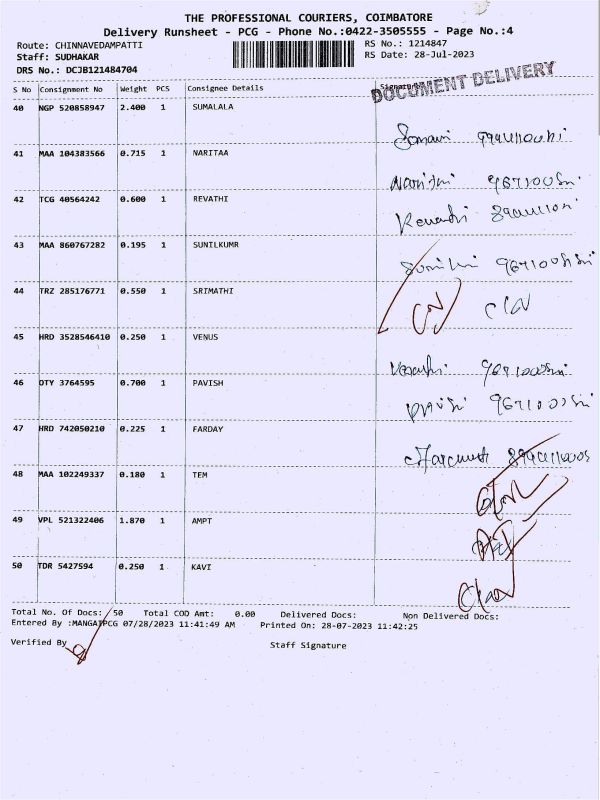 THE PROFESSIONAL COURIERS, COIMBATORE
Delivery Runsheet - PCG - Phone No.:0422-3505555 - Page No.:4
Route: CHINNAVEDAMPATTI
RS No.: 1214847
Staff: SUDHAKAR
RS Date: 28-Jul-2023
DRS No.: DCJB121484704
DOCUMENT DELIVERY
S No Consignment No Weight PCS Consignee Details Signature
40 NGP 520858947 2.400 1 SUMALALA
41 MAA 104383566 0.715 1 NARITAA
42 TCG 40564242 0.600 1 REVATHI
43 MAA 860767282 0.195 1 SUNILKUMR
44 TRZ 285176771 0.550 1 SRIMATHI
45 HRD 3528546410 0.250 1 VENUS
46 DTY 3764595 0.700 1 PAVISH
47 HRD 742050210 0.225 1 FARDAY
48 MAA 102249337 0.180 1 TEM
49 VPL 521322406 1.870 1 AMPT
50 TDR 5427594 0.250 1 KAVI
Total No. Of Docs: 50 Total COD Amt: 0.00 Delivered Docs: Non Delivered Docs:
Entered By :MANGAIPCG 07/28/2023 11:41:49 AM Printed On: 28-07-2023 11:42:25
Verified By
Staff Signature